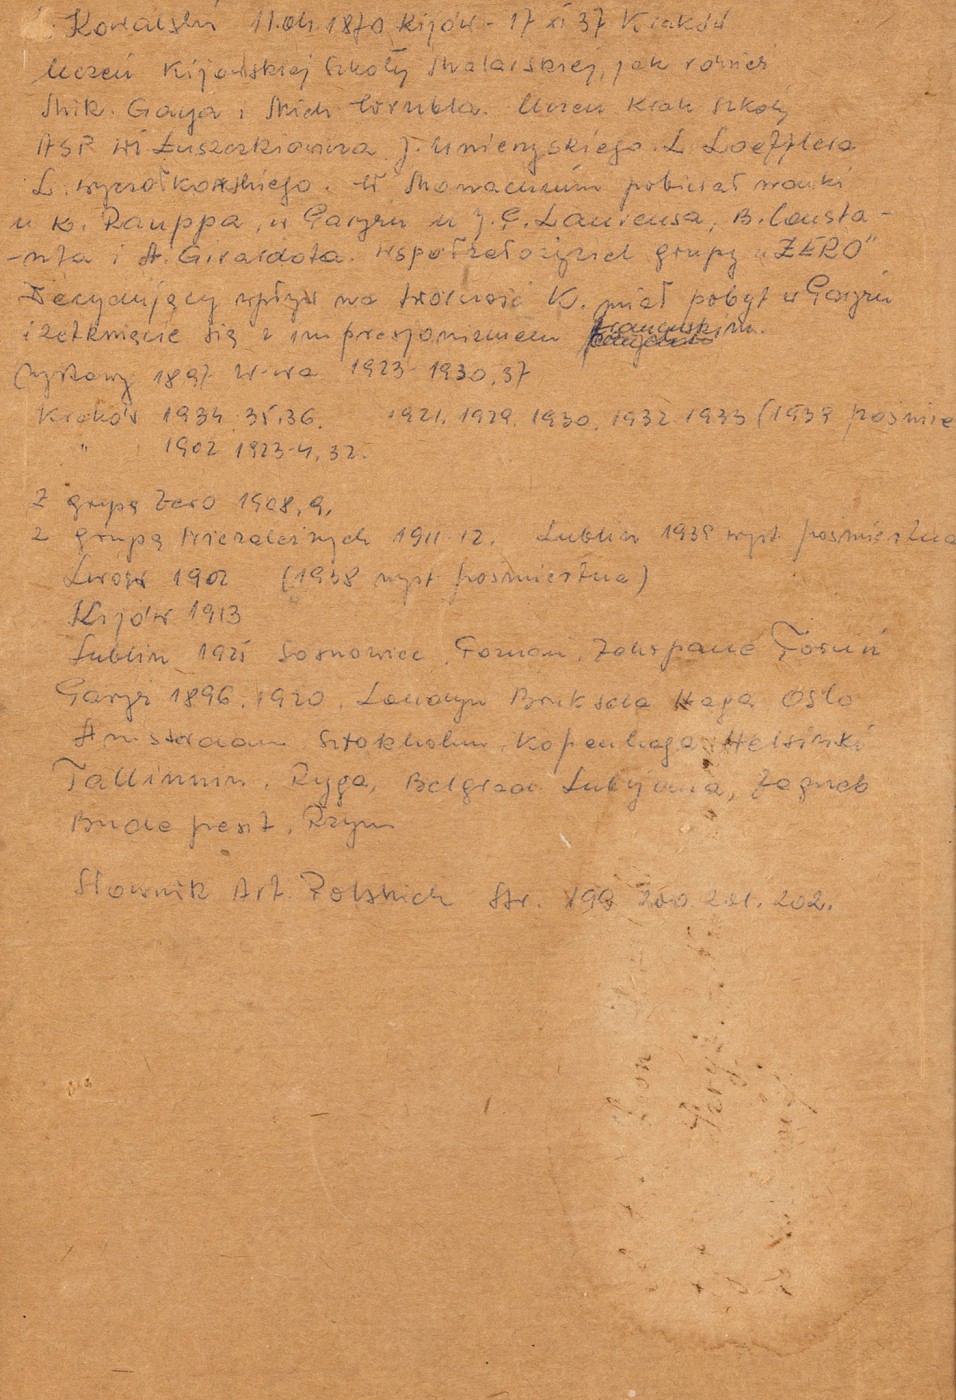 L. Kowalski 11.08.1870 Kijów - 17 XI 37 Kraków
Uczeń Kijowskiej Szkoły Malarskiej, jak również
Mik. Gaya i Mich. Wrubla. Uczeń Krak szkoły
ASP Wł Łuszczkiewicza J. Unierzyskiego L. Loefflera
L. Wyczółkowskiego. W Monachium pobierał nauki
u K. Rauppa, w Paryżu u J. P. Laurensa, B. Consta-
-nta i A. Girardota. Współzałożyciel grupy "ZERO"
Decydujący wpływ na twórczość K. miał pobyt w Paryżu
i zetknięcie się z impresjonizmem francuskim.
Wystawy 1897 W-wa 1923 1930, 37
Kraków 1934. 35. 36. 1921. 1929. 1930. 1932 1933 (1939 pośmie
" 1902 1923-4, 32.
Z grupą Zero 1908, 9,
Z grupą Niezależnych 1911 12. Lublin 1939 wyst pośmiertna
Lwów 1902 (1938 wyst pośmiertna)
Kijów 1913
Lublin 1925 Sosnowiec, Poznań, Zakopane Toruń
Paryż 1896. 1920. Londyn Bruksela Haga Oslo
Amsterdam Sztokholm, Kopenhaga Helsinki
Tallinnin, Ryga, Belgrad Lubljana, Zagrzeb
Budapeszt, Rzym
Słownik Art. Polskich Str. 199 200. 201. 202.